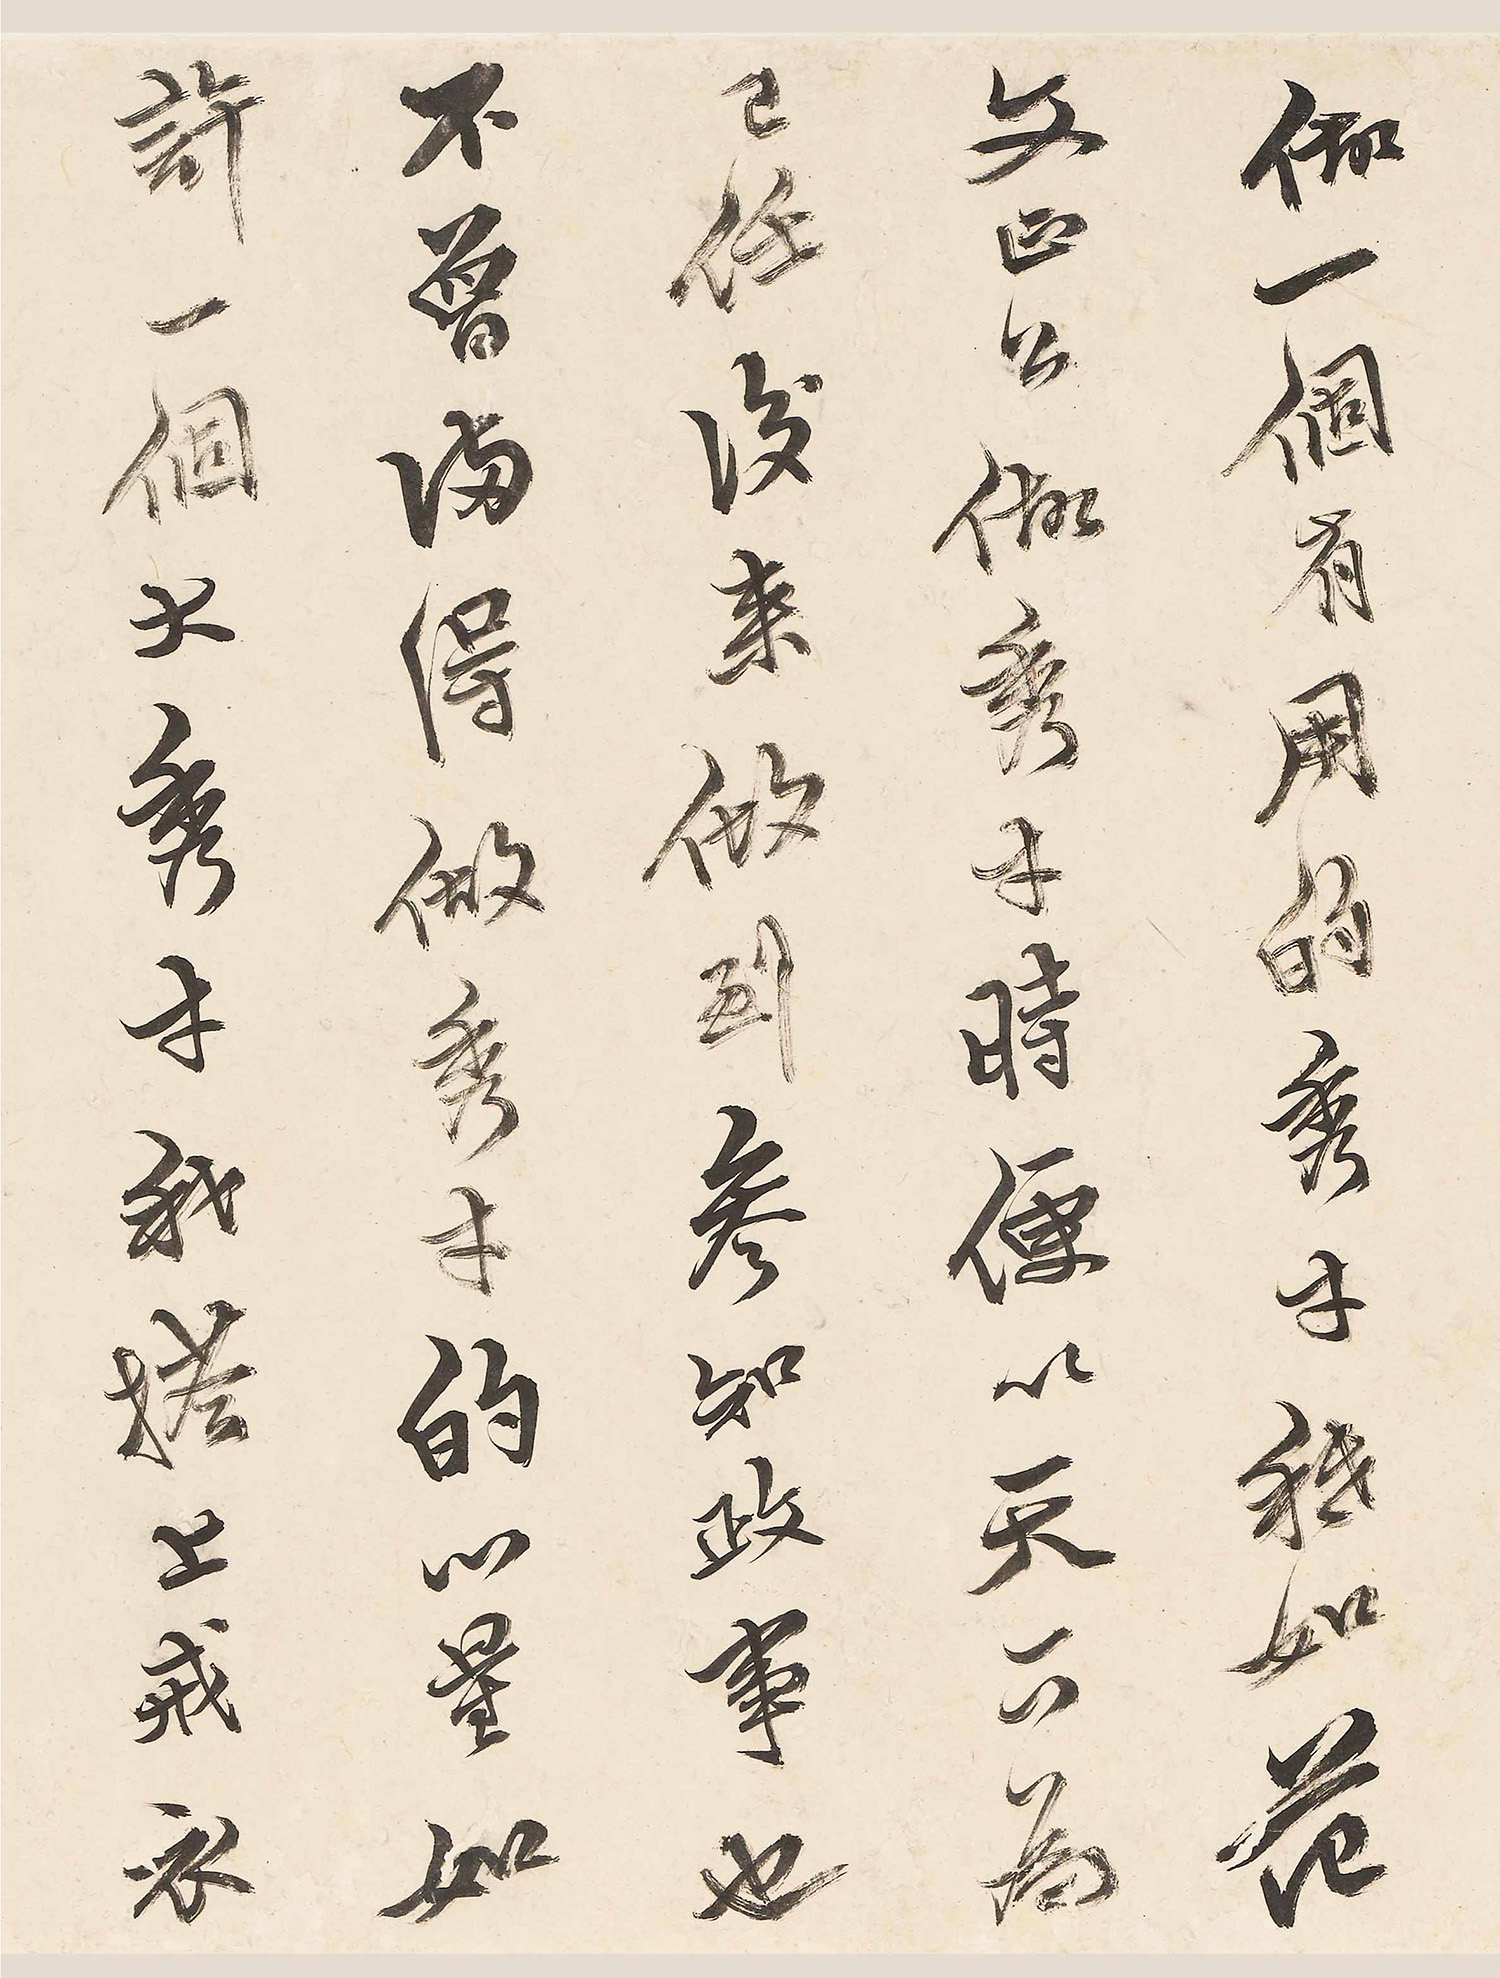 做一個有用的秀才秪如范
文正公做秀才時便以天下為
己任後来做到參知政事也
不曾滿得做秀才的心量如
許一個大秀才我搭上戒衣